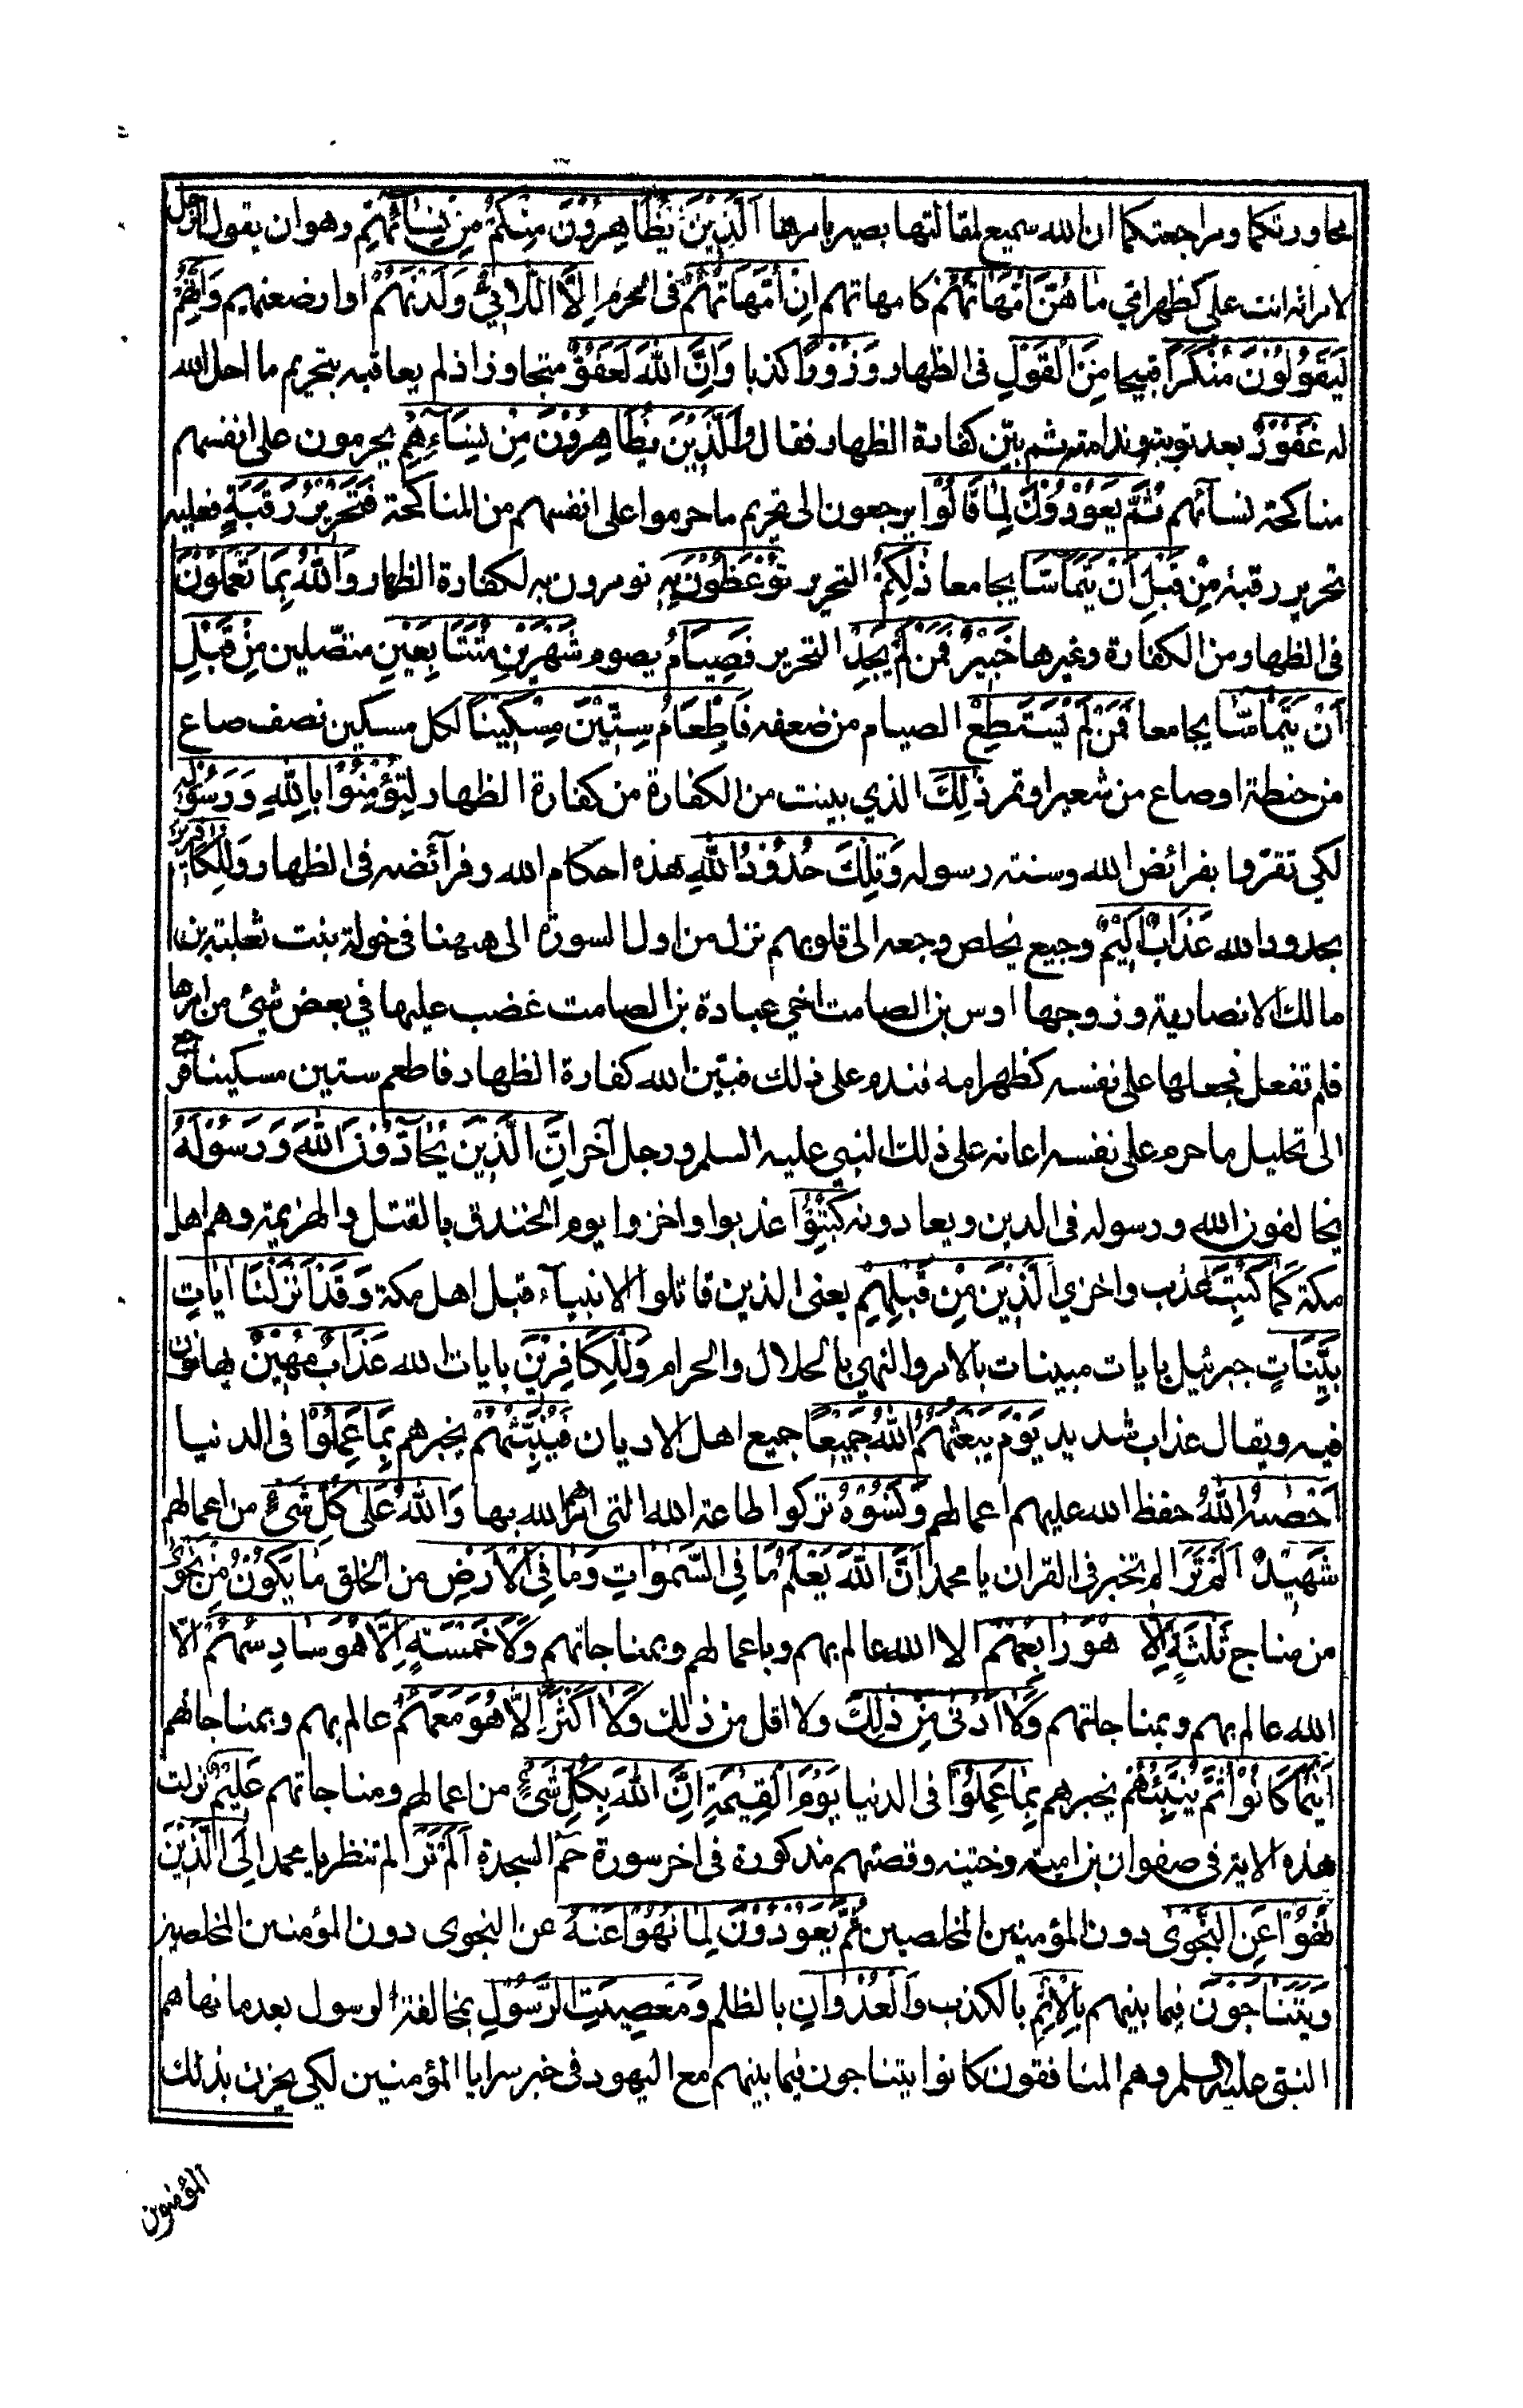 محاورتكما ومراجعتكما ان الله سميع لمقالتها بصير بامرها اَلَّذِيْنَ يُظَاهِرُوْنَ مِنْكُمْ مِنْ نِسَآئِهِمْ وهو ان يقول الرجل
لامرأته انت علي كظهر امي مَا هُنَّ اُمَّهَاتُهُمْ كامهاتهم اِنْ اُمَّهَاتُهُمْ فى الحرم اِلَّا اللَّائِيْ وَلَدْنَهُمْ او ارضعنهم وَاِنَّهُمْ
لَيَقُوْلُوْنَ مُنْكَرًا قبيحا مِنَ الْقَوْلِ فى الظهار وَزُوْرًا كذبا وَاِنَّ اللهَ لَعَفُوٌّ متجاوز اذ لم يعاقبه بتحريم ما احل الله
له غَفُوْرٌ بعد توبته وندامته ثم بيّن كفارة الظهار فقال وَالَّذِيْنَ يُظَاهِرُوْنَ مِنْ نِسَآءِهِمْ يحرمون على انفسهم
مناكحة نسآئهم ثُمَّ يَعُوْدُوْنَ لِمَا قَالُوْا يرجعون الى تحريم ما حرموا على انفسهم من المناكحة فَتَحْرِيْرُ رَقَبَةٍ فعليه
تحرير رقبة مِنْ قَبْلِ اَنْ يَتَمَاسَّا يجامعا ذٰلِكُمْ التحرير تُوْعَظُوْنَ بِهٖ تومرون به لكفارة الظهار وَاللهُ بِمَا تَعْمَلُوْنَ
فى الظهار ومن الكفارة وغيرها خَبِيْرٌ فَمَنْ لَمْ يَجِدْ التحرير فَصِيَامُ يصوم شَهْرَيْنِ مُتَتَابِعَيْنِ متصلين مِنْ قَبْلِ
اَنْ يَتَمَاسَّا يجامعا فَمَنْ لَمْ يَسْتَطِعْ الصيام من ضعفه فَاِطْعَامُ سِتِّيْنَ مِسْكِيْنًا لكل مسكين نصف صاع
من حنطة او صاع من شعير او تمر ذٰلِكَ الذي بينت من الكفارة من كفارة الظهار لِتُؤْمِنُوْا بِاللهِ وَرَسُوْلِهٖ
لكي تقرّوا بفرائض الله وسنة رسوله وَتِلْكَ حُدُوْدُ اللهِ هذه احكام الله وفرآئضه فى الظهار وَلِلْكَافِرِيْنَ
بحدود الله عَذَابٌ اَلِيْمٌ وجيع يخلص وجعه الى قلوبهم نزل من اول السورة الى ههنا فى خولة بنت ثعلبة بن
مالك الانصارية وزوجها اوس بن الصامت اخي عبادة بن الصامت غضب عليها في بعض شيئ من امرها
فلم تفعل فجعلها على نفسه كظهر امه فندم على ذلك فبيّن الله كفارة الظهار فاطعم ستين مسكينا فرجع
الى تحليل ما حرم على نفسه اعانه على ذلك النبي عليه السلم ورجل آخر اِنَّ الَّذِيْنَ يُحَآدُّوْنَ اللهَ وَرَسُوْلَهٗ
يخالفون الله ورسوله فى الدين ويعادونه كُبِتُوْا عذبوا واخزوا يوم الخندق بالقتل والهزيمة وهم اهل
مكة كَمَا كُبِتَ عذب واخزي الَّذِيْنَ مِنْ قَبْلِهِمْ يعنى الذين قاتلوا الانبيآء قبل اهل مكة وَقَدْ اَنْزَلْنَا اٰيَاتٍ
بَيِّنَاتٍ جبرئيل بايات مبينات بالامر والنهي بالحلال والحرام وَلِلْكَافِرِيْنَ بايات الله عَذَابٌ مُهِيْنٌ يهانون
فيه ويقال عذاب شديد يَوْمَ يَبْعَثُهُمُ اللهُ جَمِيْعًا جميع اهل الاديان فَيُنَبِّئُهُمْ يخبرهم بِمَا عَمِلُوْا فى الدنيا
اَحْصٰىهُ اللهُ حفظ الله عليهم اعمالهم وَنَسُوْهُ تركوا طاعة الله التى امرهم الله بها وَاللهُ عَلٰى كُلِّ شَيْءٍ من اعمالهم
شَهِيْدٌ اَلَمْ تَرَ الم تخبر فى القران يا محمد اَنَّ اللهَ يَعْلَمُ مَا فِي السَّمٰوَاتِ وَمَا فِي الْاَرْضِ من الخلق مَا يَكُوْنُ مِنْ نَجْوٰى
من مناج ثَلٰثَةٍ اِلَّا هُوَ رَابِعُهُمْ الا الله عالم بهم وباعمالهم وبمناجاتهم وَلَا خَمْسَةٍ اِلَّا هُوَ سَادِسُهُمْ الا
الله عالم بهم وبمناجاتهم وَلَا اَدْنٰى مِنْ ذٰلِكَ ولا اقل من ذلك وَلَا اَكْثَرَ اِلَّا هُوَ مَعَهُمْ عالم بهم وبمناجاتهم
اَيْنَمَا كَانُوْا ثُمَّ يُنَبِّئُهُمْ يخبرهم بِمَا عَمِلُوْا فى الدنيا يَوْمَ الْقِيٰمَةِ اِنَّ اللهَ بِكُلِّ شَيْءٍ من اعمالهم ومناجاتهم عَلِيْمٌ نزلت
هذه الاية فى صفوان بن امية وختنه وقصتهم مذكورة فى اخر سورة حٓم السجدة اَلَمْ تَرَ الم تنظر يا محمد اِلَى الَّذِيْنَ
نُهُوْا عَنِ النَّجْوٰى دون المؤمنين المخلصين ثُمَّ يَعُوْدُوْنَ لِمَا نُهُوْا عَنْهُ عن النجوى دون المؤمنين المخلصين
وَيَتَنَاجَوْنَ فيما بينهم بِالْاِثْمِ بالكذب وَالْعُدْوَانِ بالظلم وَمَعْصِيَتِ الرَّسُوْلِ بمخالفة الرسول بعد ما نهاهم
النبي عليه السلم وهم المنافقون كانوا يتناجون فيما بينهم مع اليهود فى خبر سرايا المؤمنين لكي يحزن بذلك
المؤمنون